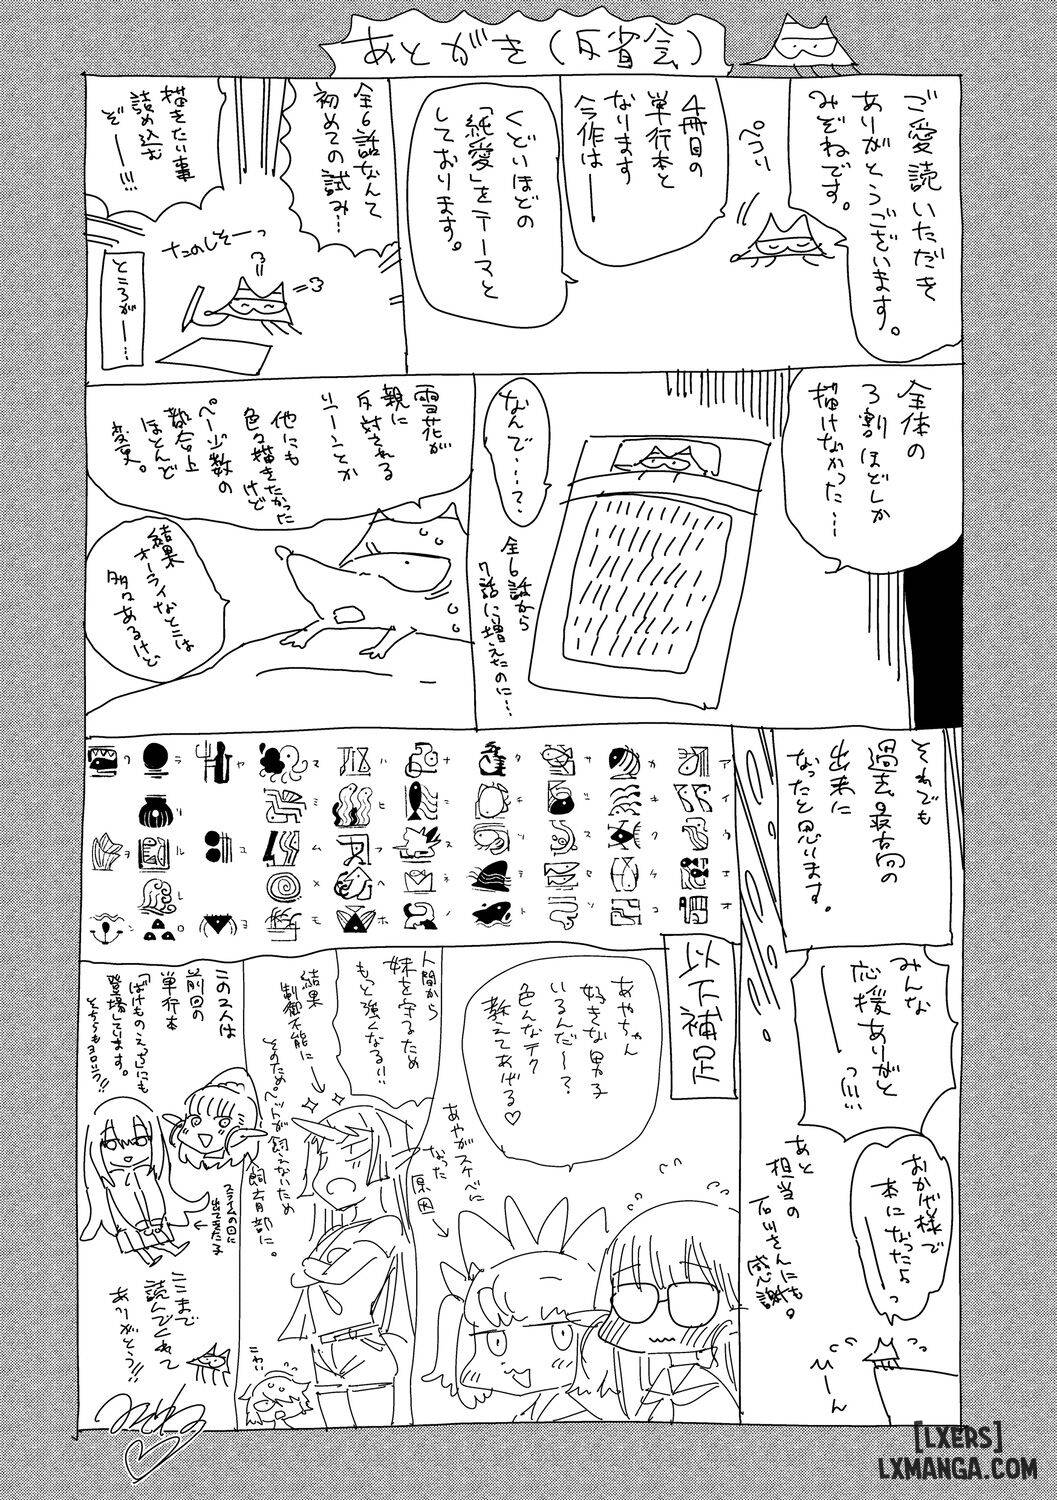 あとがき(反省会)
ご愛読いただき
ありがとうございます。
みぞねです。
ペコリ
4冊目の
単行本と
なります
今作は――
くどいほどの
「純愛」をテーマと
しております。
全6話なんて
初めての試み…
描きたい事
詰め込む
ぞーー!!!
たのしそーっ
ところが――…
全体の
3割ほどしか
描けなかった…
なんで……?
全6話から
7話に増えたのに…
雪花が
親に
反対される
シーンとか
他にも
色々描きたかった
けど
ページ数の
都合上
ほとんど
変更。
結果
オーライなとこは
多々あるけど
それでも
過去最高の
出来に
なったと思います。
みんな
応援ありがと
――っ!!!
おかげ様で
本になったよ
――っ
びーーん
あと
担当の
石川さんにも
感謝。
ア
イ
ウ
エ
オ
カ
キ
ク
ケ
コ
サ
シ
ス
セ
ソ
タ
チ
ツ
テ
ト
ナ
ニ
ヌ
ネ
ノ
ハ
ヒ
フ
ヘ
ホ
マ
ミ
ム
メ
モ
ヤ
ユ
ヨ
ラ
リ
ル
レ
ロ
ワ
ヲ
ン
以下補足
あやちゃん
好きな男子
いるんだ〜?
色んなテク
教えてあげる♡
あやがスケベに
なった
原因→
人間から
妹を守るため
もっと強くなる!!
結果
制御不能に→
そのため
ペットが飼えないため
飼育部に。
この2人は
前回の
単行本
「ばけものえる」にも
登場しています。
そちらもヨロシク!!
スライムの回に
出てきた子
ここまで
読んでくれて
ありがとう!!
みぞね
[LXERS]
LXMANGA.COM